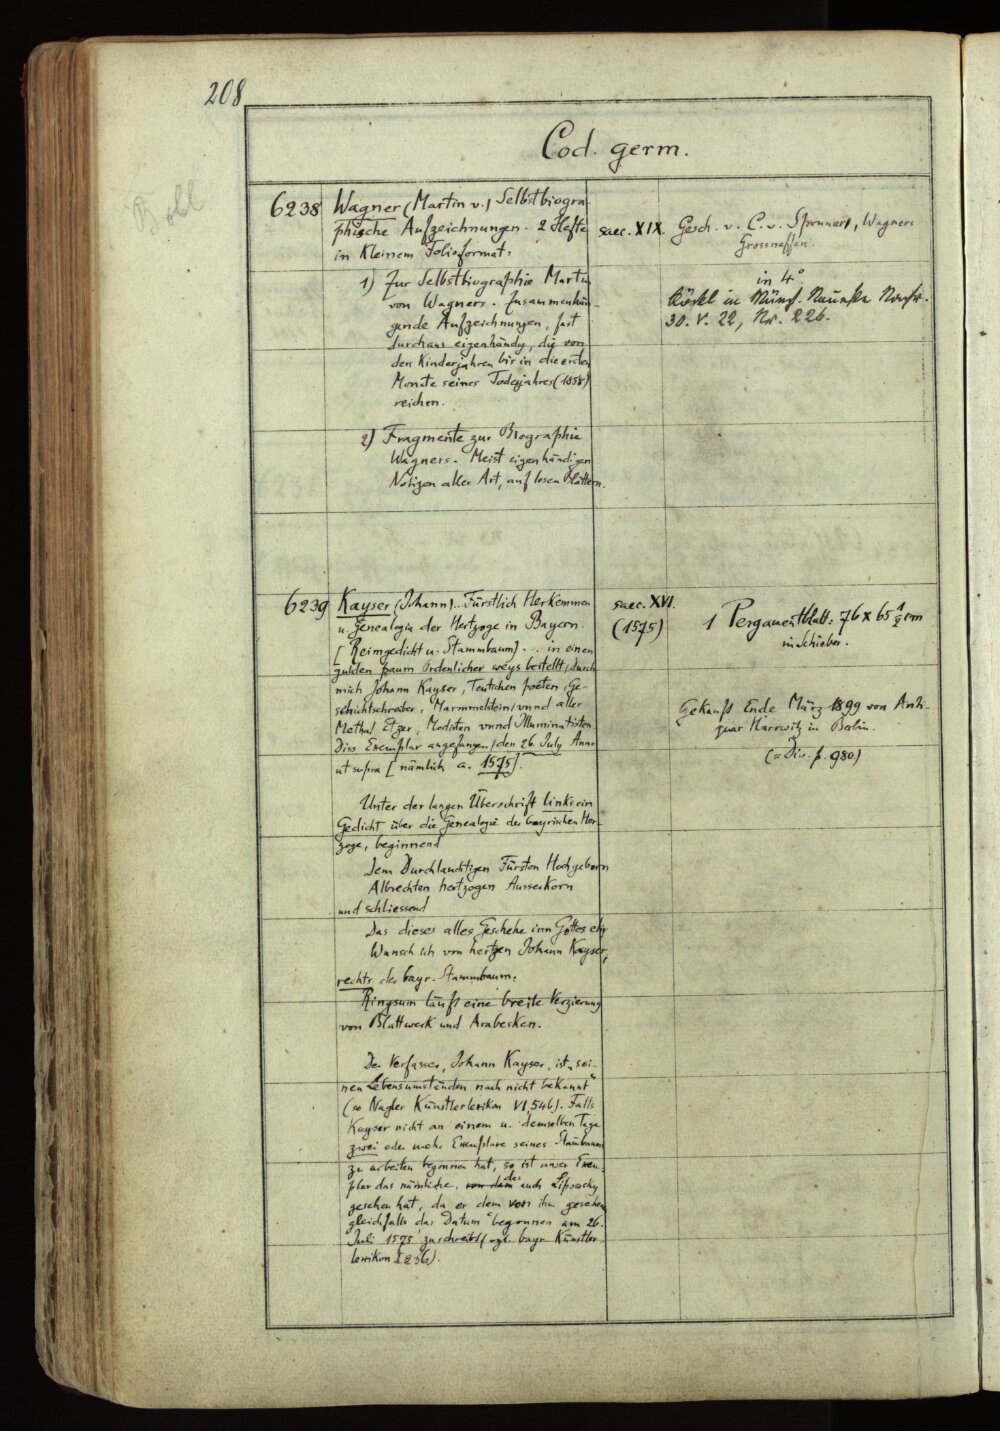 208
Cod. germ.
6238
Wagner (Martin v.) Selbstbiogra-
phische Aufzeichnungen. 2 Hefte
in Kleinem Folioformat:
1) Zur Selbstbiographie Martin
von Wagners. Zusammenhän-
gende Aufzeichnungen, fast
durchaus eigenhändig, die von
den Kinderjahren bis in die ersten
Monate seines Todesjahres (1858)
reichen.
2) Fragmente zur Biographie
Wagners. Meist eigenhändigen
Notizen aller Art, auf losen Blättern.
saec. XIX.
Gesch. v. C. v. Spruner, Wagners
Grossneffen.
in 4°
in Münch.
30. V. 22, Nr. 226.
6239
Kayser (Johann).. Fürstlich Herkommen
u. Genealogia der Hertzoge in Bayern.
[Reimgedicht u. Stammbaum] ... in einen
gulden paum Ordenlicher weys bestellt, durch
mich Johann Kayser, Teutschen poeten, Ge-
schichtschreiber, Marmmelstein/vnnd aller
Methal Etzer, Modisten vnnd Illuministen
Diss Exemplar angefangen/den 26. July Anno
ut supra [nämlich a. 1575].
Unter der langen Überschrift links ein
Gedicht über die Genealogie der bayrischen Her-
zoge, beginnend
Dem Durchlauchtigen Fürsten Hochgeborn
Albrechten hertzogen Ausserkorn
und schliessend
Das dieses alles Geschehe inn Gottes ehr
Wunsch ich von hertzen Johann Kayser,
rechts der bayr. Stammbaum.
Ringsum läuft eine breite Verzierung
von Blattwerk und Arabesken.
Der Verfasser, Johann Kayser, ist „sei-
nen Lebensumständen nach nicht bekannt"
(so Nagler Künstlerlexikon VI, 546). Falls
Kayser nicht an einem u. demselben Tage
zwei oder mehr Exemplare seines Stammbaums
zu arbeiten begonnen hat, so ist unser Exem-
plar das nämliche, das auch Lipowsky
gesehen hat, da er dem von ihm gesehenen
gleichfalls das Datum "begonnen am 26.
Juli 1575" zuschreibt (vgl. bayr. Künstler-
lexikon I 236).
saec. XVI.
(1575)
1 Pergamentblatt: 76 x 65 1/2 cm
im Schieber.
Gekauft Ende März 1899 von Anti-
quar Harrwitz in Berlin.
(= Div. p. 980.)